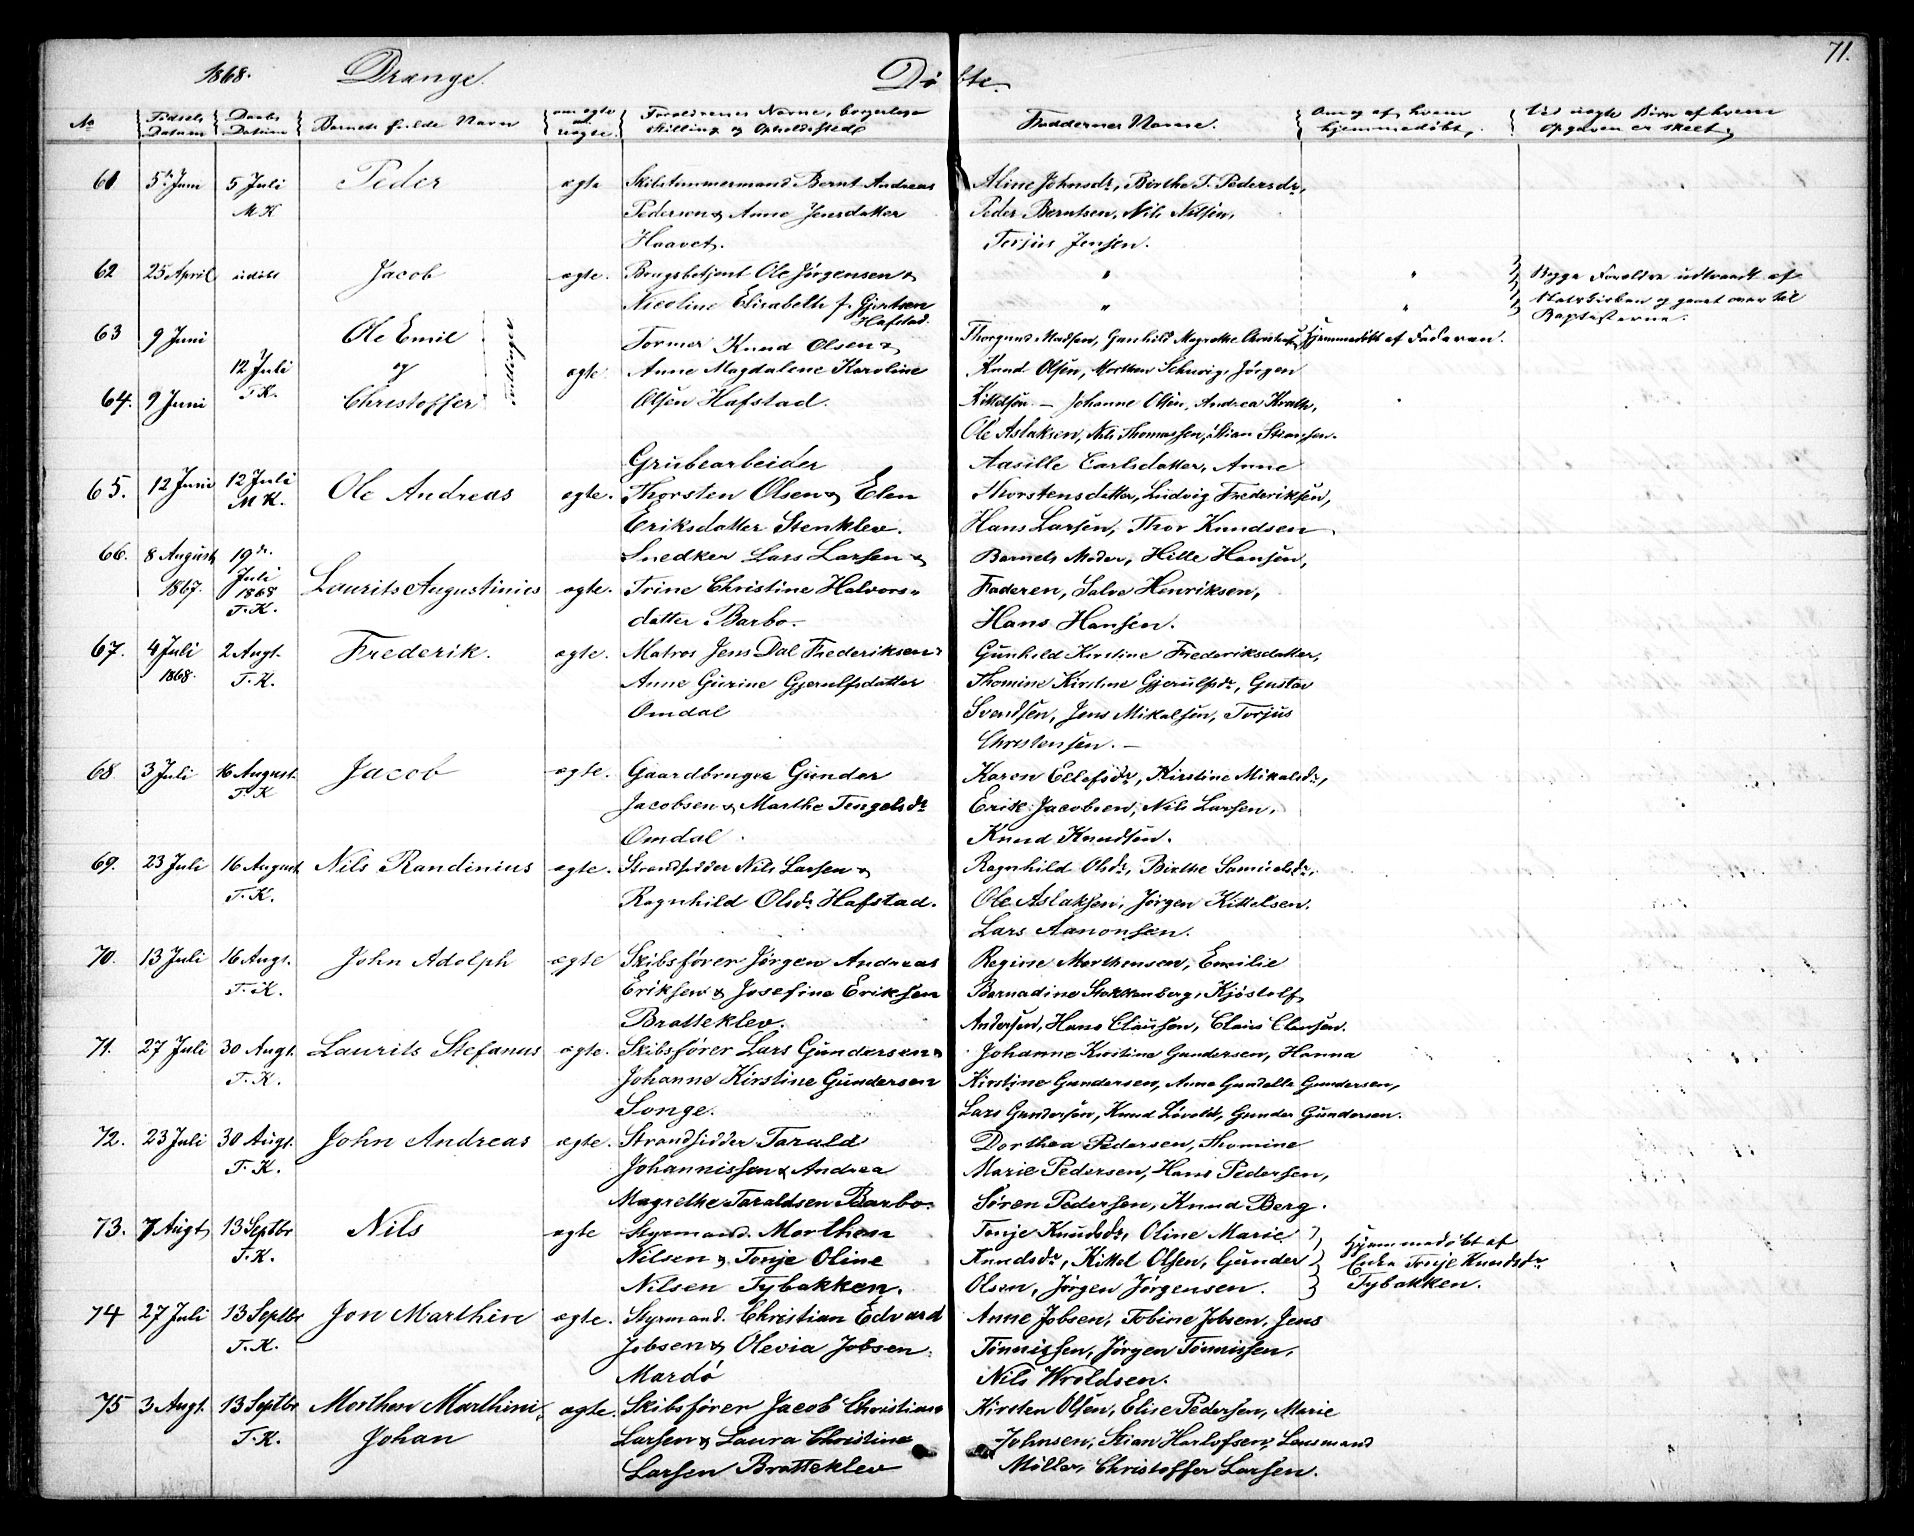 71.
1868. Drenge. Døbte.
No Fødsels Datum Daabs Datum Barnets fulde Navn om ægte el. uægte. Forældrenes Navne, borgerlige Stilling og Opholdssted Faddernes Navne. Om og af hvem hjemmedøbt. Ved uægte Børn af hvem Opgaven er skeet.
61 5te Juni 5 Juli Peder ægte Skibstømmermand Bernt Andreas Aline Johnsdr, Birthe T. Pedersdr,
M K Pedersen & Anne Jensdatter Peder Berntsen, Nils Nilsen,
Haavet. Terjus Jensen.
62 25 April udøbt Jacob ægte. Brugsbetjent Ole Jørgensen & " " Begge Forældre udtraadt af
Nicoline Elisabeth f. Gjertsen " " Statskirken og gaaet over til
Hafstad. Baptisterne.
63 9 Juni Ole Emil Former Knud Olsen & Thorgund Madsen, Gunhild Magrethe Hjemmedøbt af Faderen.
12 Juli og tvillinger ægte Anne Magdalene Karoline Knud Olsen, Morthen Schwig, Jørgen
64. 9 Juni T.K. Christoffer Olsen Hafstad. Kittelsen. — Johanne Olsen, Andrea Krath,
Ole Aslaksen, Nils Thomassen, Stian Stiansen.
Grubearbeider Aasille Carlsdatter, Anne
65. 12 Juni 12 Juli Ole Andreas ægte. Thorsten Olsen & Elen Thorstensdatter, Ludvig Frederiksen,
M K. Eriksdatter Stenklev. Hans Larsen, Thor Knudsen
66. 8 August 19de Snedker Lars Larsen & Barnets Moder, Hille Hansen,
1867. Juli 1868 Laurits Augustinius ægte. Trine Christine Halvors- Faderen, Salve Henriksen,
T.K. datter Barbo. Hans Hansen.
67. 4 Juli 2 Augt. Frederik. ægte. Matros Jens Dal Frederiksen & Gunhild Kirstine Frederiksdatter,
1868. T.K. Anne Gurine Gjerulfsdatter Thomine Kirstine Gjerulfsdr, Gustav
Omdal Svendsen, Jens Mikalsen, Torjus
Christensen. —
68 3 Juli 16 August. Jacob ægte. Gaardbruger Gunder Karen Ellefsdr, Kirstine Mikalsdr,
T.K Jacobsen & Marthe Tengelsdr Erik Jacobsen, Nils Larsen,
Omdal. Knud Knudsen.
69. 23 Juli 16 August Nils Randinius ægte. Strandsidder Nils Larsen & Ragnhild Olsdr, Birthe Samuelsdr,
T.K. Ragnhild Olsdr Hafstad. Ole Aslaksen, Jørgen Kittelsen.
Lars Aanonsen.
70. 13 Juli 16 Augt. John Adolph ægte Skibsfører Jørgen Andreas Regine Morthensen, Emilie
T.K. Eriksen & Josefine Eriksen Bernadine Stokkenberg, Kjøstolf
Bratteklev. Andersen, Hans Clausen, Claus Clausen.
71. 27 Juli 30 Augt. Laurits Stefanus ægte. Skibsfører Lars Gundersen & Johanne Kirstine Gundersen, Hanna
T.K. Johanne Kirstine Gundersen Kirstine Gundersen, Anne Gundelle Gundersen,
Songe. Lars Gundersen, Knud Løvold, Gunder Gundersen.
72. 23 Juli 30 Augt. John Andreas ægte. Strandsidder Tarald Dorthea Pedersen, Thomine
T.K. Johannissen & Andrea Marie Pedersen, Hans Pedersen,
Magrethe Taraldsen Barbo. Søren Pedersen, Knud Berg.
73. 7 Augt 13 Septbr Nils ægte Styrmand Morthen Tonje Knudsdr, Oline Marie Hjemmedøbt af
T.K. Nilsen & Tonje Oline Knudsdr, Kittel Olsen, Gunder Enke Tonje Knudsdr
Nilsen Tybakken. Olsen, Jørgen Jørgensen. Tybakken.
74 27 Juli 13 Septbr Jon Marthin ægte. Styrmand. Christian Edvard Anne Jobsen, Tobine Jobsen, Jens
T.K. Jobsen & Olevia Jobsen. Tønnissen, Jørgen Tønnissen,
Mardø Nils Wroldsen.
75 3 Augt. 13 Septbr Morthen Marthini ægte. Skibsfører Jacob Christian Kirsten Olsen, Elise Pedersen, Marie
T.K. Johan Larsen & Laura Christine Johnsen, Stian Herlofsen, Lensmand
Larsen Bratteklev Møller, Christoffer Larsen.